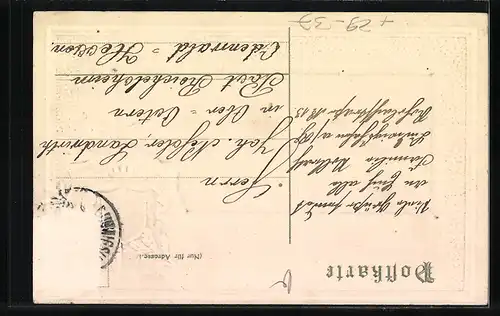 Postkarte
(Nur für Adresse.)
Viele Grüße sendet
an Euch alle
Familie
Ludwigshafen a/Rh.
Herrn
Joh. Landwirth
in Ober-Ostern
Post Reichelsheim
Odenwald = Hessen.
LUDWIGS
+29-37